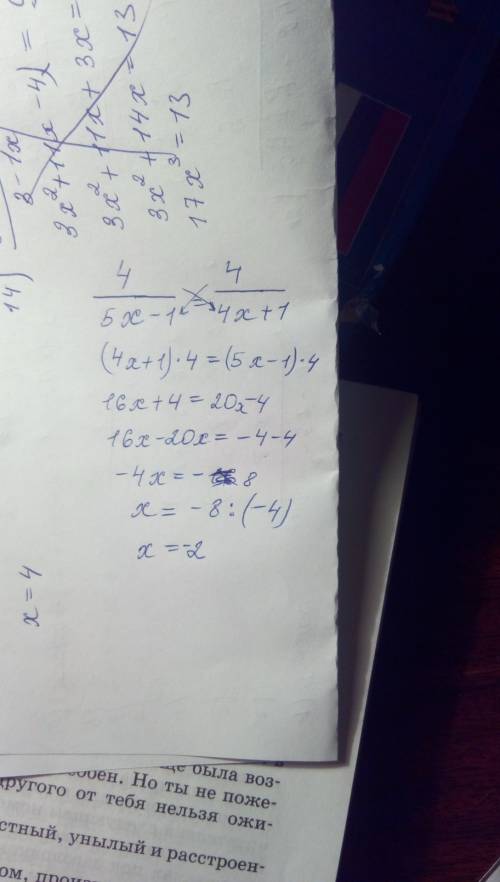 3x²+11x-42=
3x²+11x+3x=
3x²+14x=13
17x³=13
14)
4 4
5x-1 = 4x+1
(4x+1)·4=(5x-1)·4
16x+4=20x-4
16x-20x=-4-4
-4x=-8
x=-8:(-4)
x=-2
x=4
была воз-
Но ты не поже-
другого от тебя нельзя ожи-
стный, унылый и расстроен-